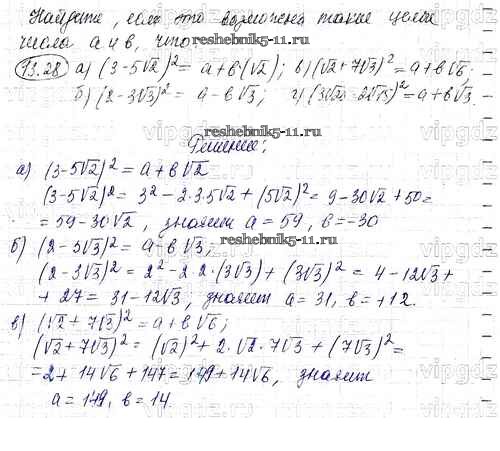 Найдите, если это возможно такие целые
числа a и в, что
reshebnik5-11.ru
13.28 а) (3-5√2)² = a+в(√2); в) (√2+7√3)² = a+в√6;
б) (2-3√3)² = a-в√3; г) a+в√3.
reshebnik5-11.ru
Решение:
а) (3-5√2)² = a+в√2
(3-5√2)² = 3² - 2·3·5√2 + (5√2)² = 9-30√2 + 50 =
= 59-30√2, значит a = 59, в = -30
б) (2-3√3)² = a-в√3; reshebnik5-11.ru
(2-3√3)² = 2² - 2·2·(3√3) + (3√3)² = 4-12√3 +
+ 27 = 31-12√3, значит a = 31, в = +12.
в) (√2 + 7√3)² = a+в√6;
(√2 + 7√3)² = (√2)² + 2·√2·7√3 + (7√3)² =
= 2 + 14√6 + 147 = 149 + 14√6, значит
a = 149, в = 14.
vipgdz